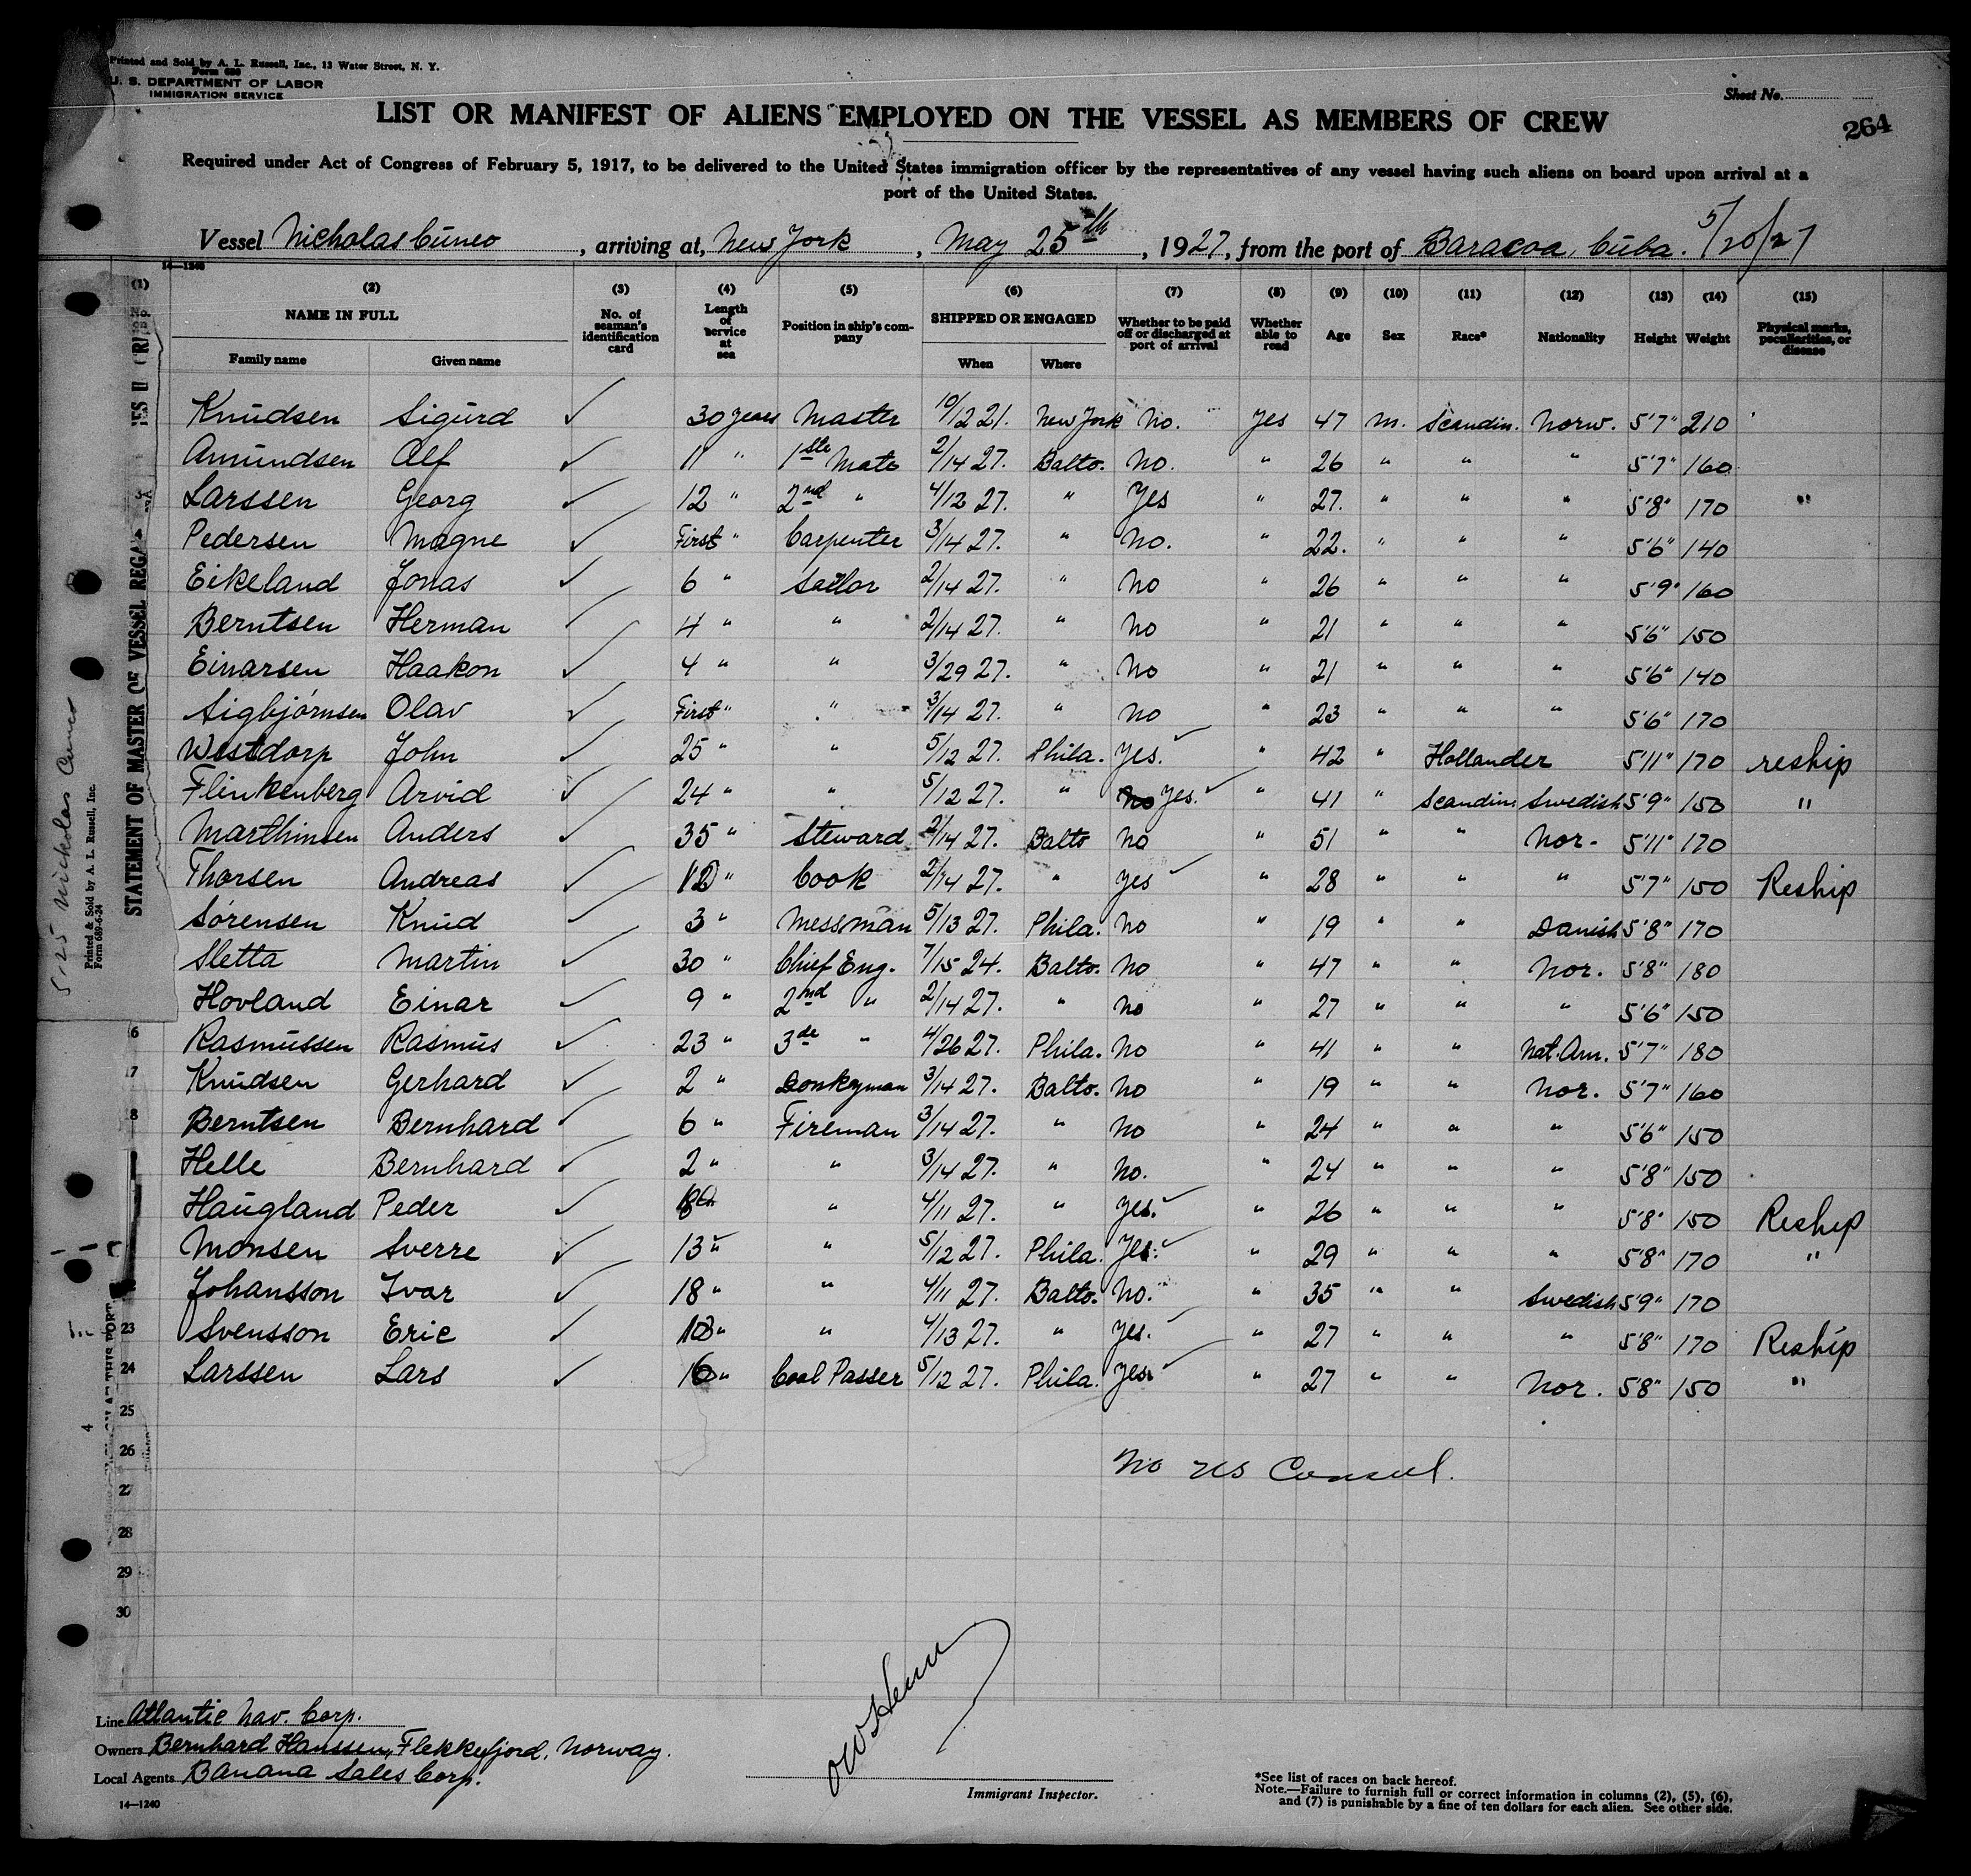 Printed and Sold by A. L. Russell, Inc., 13 Water Street, N. Y.
Form 680
U. S. DEPARTMENT OF LABOR
IMMIGRATION SERVICE
Sheet No.
LIST OR MANIFEST OF ALIENS EMPLOYED ON THE VESSEL AS MEMBERS OF CREW
264
Required under Act of Congress of February 5, 1917, to be delivered to the United States immigration officer by the representatives of any vessel having such aliens on board upon arrival at a
port of the United States.
Vessel Nicholas Cuneo, arriving at, New York, May 25th, 1927, from the port of Baracoa, Cuba. 5/20/27
14—1240
(1) (2) (3) (4) (5) (6) (7) (8) (9) (10) (11) (12) (13) (14) (15)
NAME IN FULL No. of seaman's identification card Length of service at sea Position in ship's company SHIPPED OR ENGAGED Whether to be paid off or discharged at port of arrival Whether able to read Age Sex Race* Nationality Height Weight Physical marks, peculiarities, or disease
Family name Given name When Where
Knudsen Sigurd ✓ 30 years Master 10/12 21. New York No. Yes 47 M. Scandin. Norw. 5'7" 210
Amundsen Alf ✓ 11 " 1ste Mate 2/14 27. Balto. No. " 26 " " " 5'7" 160
Larssen Georg ✓ 12 " 2nd " 4/12 27. " Yes " 27. " " " 5'8" 170 "
Pedersen Magne ✓ First " Carpenter 3/14 27. " No. " 22. " " " 5'6" 140
Eikeland Jonas ✓ 6 " Sailor 2/14 27. " No " 26 " " " 5'9" 160
Berntsen Herman ✓ 4 " " 2/14 27. " No " 21 " " " 5'6" 150
Einarsen Haakon ✓ 4 " " 3/29 27. " No " 21 " " " 5'6" 140
Sigbjørnsen Olav ✓ First " " 3/14 27. " No " 23 " " " 5'6" 170
Westdorp John ✓ 25 " " 5/12 27. Phila. Yes. ✓ " 42 " Hollander 5'11" 170 reship
Flinkenberg Arvid ✓ 24 " " 5/12 27. " No Yes. ✓ " 41 " Scandin. Swedish 5'9" 150 "
Marthinsen Anders ✓ 35 " Steward 2/14 27. Balto No " 51 " " Nor. 5'11" 170
Thorsen Andreas ✓ 12 " Cook 2/14 27. " Yes ✓ " 28 " " " 5'7" 150 Reship
Sørensen Knud ✓ 3 " Messman 5/13 27. Phila. No " 19 " " Danish 5'8" 170
Sletta Martin ✓ 30 " Chief Eng. 7/15 24. Balto. No " 47 " " Nor. 5'8" 180
Hovland Einar ✓ 9 " 2nd " 2/14 27. " No " 27 " " " 5'6" 150
6 Rasmussen Rasmus ✓ 23 " 3de " 4/26 27. Phila. No " 41 " " Nat. Am. 5'7" 180
7 Knudsen Gerhard ✓ 2 " Donkyman 3/14 27. Balto. No " 19 " " Nor. 5'7" 160
8 Berntsen Bernhard ✓ 6 " Fireman 3/14 27. " No " 24 " " " 5'6" 150
Helle Bernhard ✓ 2 " " 3/14 27. " No. " 24 " " " 5'8" 150
Haugland Peder ✓ " 4/11 27. " Yes. ✓ " 26 " " " 5'8" 150 Reship
Monsen Sverre ✓ 13 " " 5/12 27. Phila. Yes. ✓ " 29 " " " 5'8" 170 "
Johansson Ivar ✓ 18 " " 4/11 27. Balto. No. " 35 " " Swedish 5'9" 170
23 Svensson Eric ✓ " 4/13 27. " Yes. ✓ " 27 " " " 5'8" 170 Reship
24 Larssen Lars ✓ Coal Passer 5/12 27. Phila. Yes. ✓ " 27 " " Nor. 5'8" 150 "
25
26 No US Consul.
27
28
29
30
STATEMENT OF MASTER OF VESSEL REGA
Printed & Sold by A. L. Russell, Inc.
Form 689-6-24
5-25 Nicholas Cuneo
4
Line Atlantic Nav. Corp.
Owners Bernhard Hanssen, Flekkefjord, Norway.
Local Agents Banana Sales Corp.
14—1240
Immigrant Inspector.
*See list of races on back hereof.
Note.—Failure to furnish full or correct information in columns (2), (5), (6),
and (7) is punishable by a fine of ten dollars for each alien. See other side.